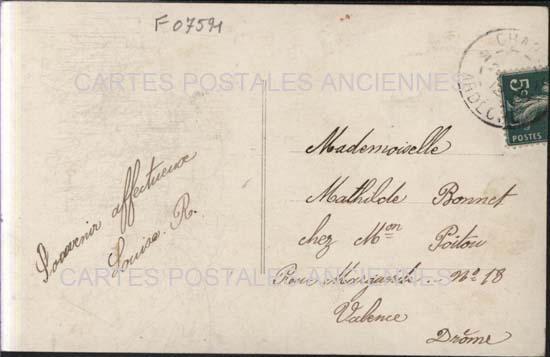 F 07594
CARTES POSTALES ANCIENNES
5c
POSTES
Souvenir affectueux
Louise. R.
Mademoiselle
Mathilde Bonnet
chez Mon Poitou
No 18
Valence
Drôme
CARTES POSTALES ANCIENNES